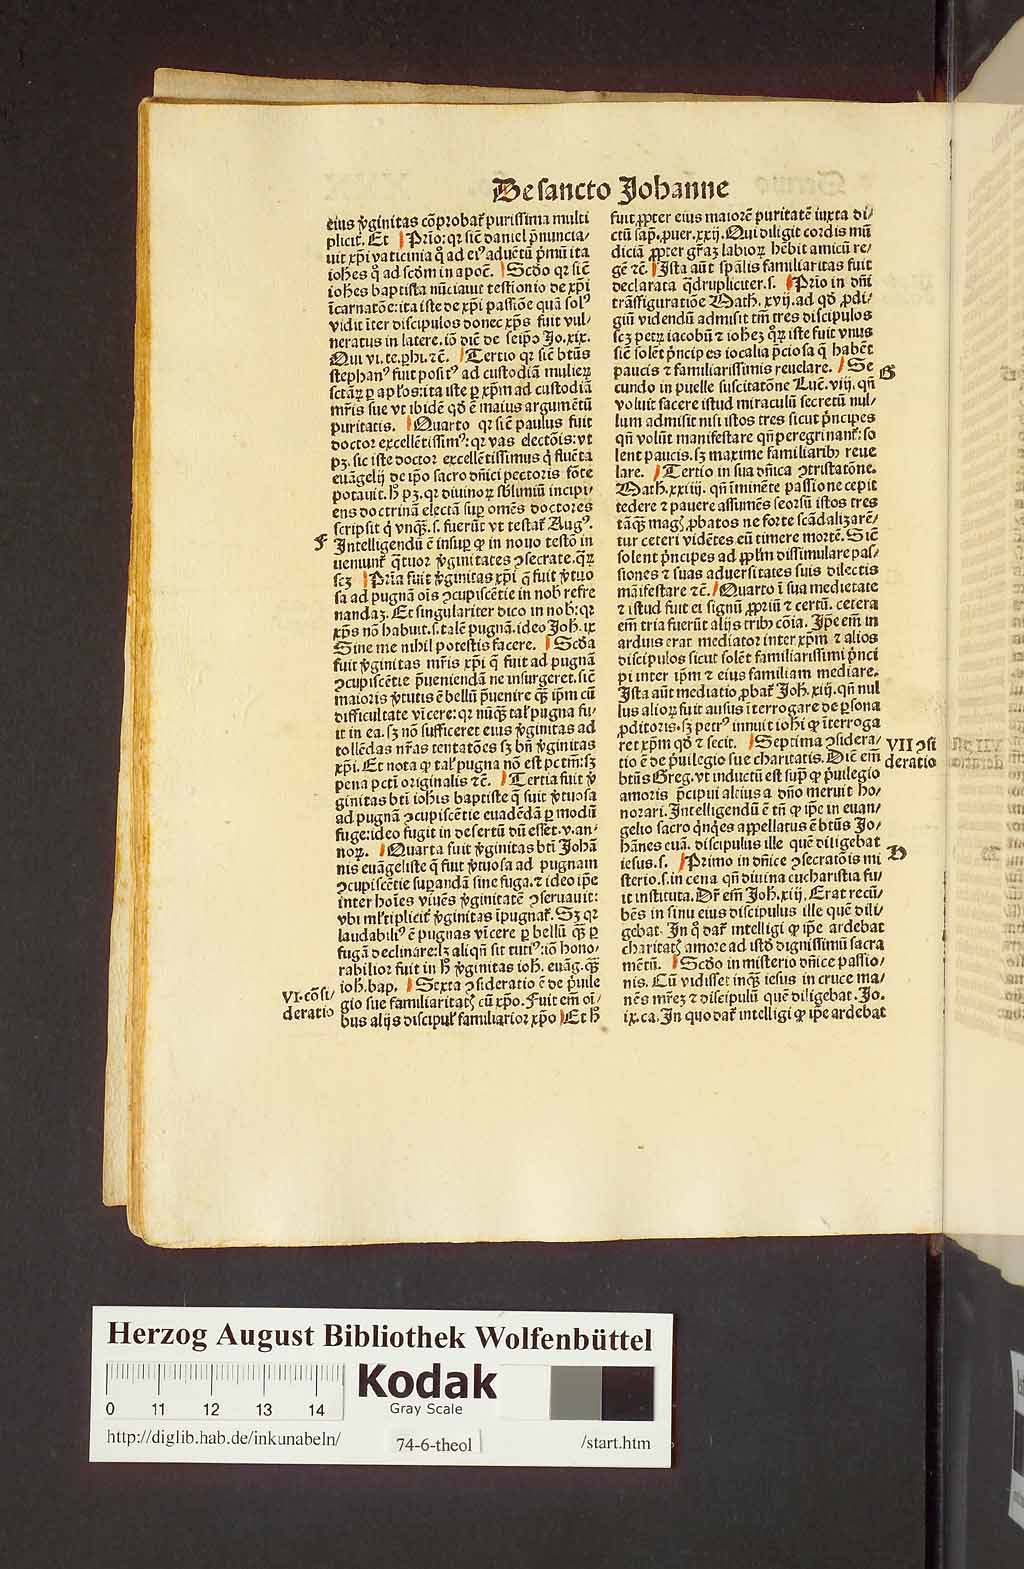 De sancto Johanne
eius v̓ginitas cōprobat᷒ purissima multi
plicit᷒. Et Prīo: qr sic̄ daniel p̄nuncia⸗
uit xp̄i vaticinia q̄ ad eiꝰ aduētū p̄mū ita
ioh̄es q̄ ad sc̄dm in apoc̄. Sc̄do qr sic̄
ioh̄es baptista nūciauit testīonio de xp̄i
īcarnatōe: ita iste de xp̄i passiōe quā solꝰ
vidit īter discipulos donec xp̄s fuit vul⸗
neratus in latere. iō dic̄ de seip̄o Jo. xix.
Qui vi. te. phi. ⁊c̄. Tertio qr sic̄ btūs
stephanꝰ fuit positꝰ ad custodiā mulieꝝ
sctāꝝ ꝑ apl̄os: ita iste ꝑ xp̄m ad custodiā
mr̄is sue vt ibidē qd̄ ē maius argumētū
puritatis. Quarto qr sic̄ paulus fuit
doctor excellētissimꝰ: qr vas electōis: vt
pꝫ. sic iste doctor excellētissimus q̄ fluēta
euāgelij de ip̄o sacro dn̄ici pectoris fōte
potauit. h̄ pꝫ. qr diuinoꝝ sb̄limiū incipi⸗
ens doctrinā electā suꝑ om̄es doctores
scripsit q̄ vnqꝫ. s. fuerūt vt testat᷒ Augꝰ.
F Intelligendū ē insuꝑ ꝙ in nouo testō in
ueniunt᷒ q̄tuor v̓ginitates ↄsecrate. q̄ꝝ
scꝫ Prīa fuit v̓ginitas xp̄i q̄ fuit v̓tuo
sa ad pugnā oīs ↄcupiscētie in nob̄ refre
nandaꝫ. Et singulariter dico in nob̄: qr
xp̄s nō habuit. s. talē pugnā. ideo Joh. ix
Sine me nihil potestis facere. Sc̄da
fuit v̓ginitas mr̄is xp̄i q̄ fuit ad pugnā
ↄcupiscētie p̄ueniendā ne insurgeret. sic̄
maioris v̓tutis ē bellū p̄uenire qꝫ ip̄m cū
difficultate vīcere: qr nūqꝫ tal᷒ pugna fu⸗
it in ea. sꝫ nō sufficeret eius v̓ginitas ad
tollēdas nr̄as tentatōes sꝫ bn̄ v̓ginitas
xp̄i. Et nota ꝙ tal᷒ pugna nō est pctm̄: sꝫ
pena pcti̅ originalis ⁊c̄. Tertia fuit v̓
ginitas bti̅ ioh̄is baptiste q̄ fuit v̓tuosa
ad pugnā ↄcupiscētie euadēdā ꝑ modū
fuge: ideo fugit in desertū dū esset. v. an⸗
noꝝ. Quarta fuit v̓ginitas bti̅ Johā
nis euāgeliste q̄ fuit v̓tuosa ad pugnam
ↄcupiscētie suꝑandā sine fuga. ⁊ ideo ip̄e
inter hoīes viuēs v̓ginitatē ↄseruauit:
vbi ml̓tiplicit᷒ v̓ginitas īpugnat᷒. Sꝫ qr
laudabiliꝰ ē pugnas vīcere ꝑ bellū qꝫ ꝑ
fugā declinare: lꝫ aliqn̄ sit tutiꝰ: iō hono⸗
rabilior fuit in h̄ v̓ginitas ioh. euāg. qꝫ
ioh. bap. Sexta ↄsideratio ē de p̄uile
VI. cōsi⸗
deratio
gio sue familiaritatꝭ cū xp̄o. Fuit em̄ oī⸗
bus alijs discipul᷒ familiarior xp̄o Et h̄
fuit ꝓpter eius maiorē puritatē iuxta di⸗
ctū sap̄. ꝓuer. xxij. Qui diligit cordis mū
diciā ꝓpter gr̄aꝫ labioꝝ heb̄it amicū re⸗
gē ⁊c̄. Ista aūt spāl̄is familiaritas fuit
declarata q̄drupliciter. s. Prīo in dn̄i
trāsfiguratiōe Math. xvij. ad qd̄ ꝓdi⸗
giū videndū admisit tm̄ tres discipulos
scꝫ petꝝ iacobū ⁊ ioheꝫ qꝝ iste fuit vnus
sic̄ solēt p̄ncipes iocalia p̄ciosa q̄ habēt
paucis ⁊ familiarissimis reuelare. Se
G
cundo in puelle suscitatōne Luc̄. viij. qn̄
voluit facere istud miraculū secretū nul⸗
lum admisit nisi istos tres sicut p̄ncipes
qn̄ volūt manifestare qn̄ peregrinant᷒: so
lent paucis. sꝫ maxime familiaribꝫ reue
lare. Tertio in sua dn̄ica ↄtristatōne.
Math. xxiiij. qn̄ īminēte passione cepit
tedere ⁊ pauere assumēs seorsū istos tres
tāqꝫ magꝭ ꝓbatos ne forte scādalizarē⸗
tur ceteri vidētes eū timere mortē. Sic̄
solent p̄ncipes ad ppl̄m dissimulare pas⸗
siones ⁊ suas aduersitates suis dilectis
māifestare ⁊c̄. Quarto ī sua medietate
⁊ istud fuit ei signū ꝓpriū ⁊ certū. cetera
em̄ tria fuerūt alijs tribꝫ cōia. Ip̄e em̄ in
arduis erat mediator inter xp̄m ⁊ alios
discipulos sicut solēt familiarissimi p̄nci
pi inter ip̄m ⁊ eius familiam mediare.
Ista aūt mediatio ꝓbat᷒ Joh. xiij. qn̄ nul
lus alioꝝ fuit ausus īterrogare de ꝑsona
ꝓditoris. sꝫ petrꝰ innuit ioh̄i ꝙ īterroga
ret xp̄m qd̄ ⁊ fecit. Septima ↄsidera⸗
VII ↄsi
deratio
tio ē de p̄uilegio sue charitatis. Dic̄ em̄
btūs Greg. vt inductū est sup̄ ꝙ p̄uilegio
amoris p̄cipui alcius a dn̄o meruit ho⸗
norari. Intelligendū ē tn̄ ꝙ ip̄e in euan⸗
gelio sacro q̄nq̄es appellatus ē btūs Jo⸗
hānes euā. discipulus ille quē diligebat
iesus. s. Primo in dn̄ice ↄsecratōis mi
H
sterio. s. in cena qn̄ diuina eucharistia fu⸗
it instituta. Dr̄ em̄ Joh. xiij. Erat recū⸗
bēs in sinu eius discipulus ille quē dili⸗
gebat. In q̄ dat᷒ intelligi ꝙ ip̄e ardebat
charitatꝭ amore ad istd̄ dignissimū sacra
mētū. Sc̄do in misterio dn̄ice passio⸗
nis. Cū vidisset inqꝫ iesus in cruce ma⸗
nēs mr̄eꝫ ⁊ discipulū quē diligebat. Jo.
ix. ca. In quo dat᷒ intelligi ꝙ ip̄e ardebat
Herzog August Bibliothek Wolfenbüttel
Kodak
Gray Scale
0 11 12 13 14
http://diglib.hab.de/inkunabeln/
74-6-theol
/start.htm